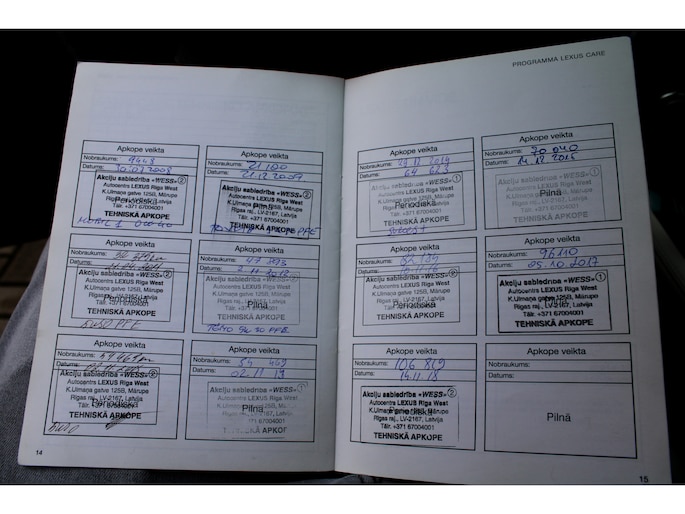 PROGRAMMA LEXUS CARE
Apkope veikta
Nobraukums: 9448
Datums: 30.07.2008
Akciju sabiedrība «WESS» ②
Autocentrs LEXUS Riga West
K.Ulmaņa gatve 125B, Mārupe
Rīgas raj., LV-2167, Latvija
Periodiskā
Tālr. +371 67004001
TEHNISKĀ APKOPE
Apkope veikta
Nobraukums: 21 100
Datums: 21.12.2009
Akciju sabiedrība «WESS» ②
Autocentrs LEXUS Riga West
K.Ulmaņa gatve 125B, Mārupe
Rīgas raj., LV-2167, Latvija
Pilnā
Tālr. +371 67004001
TEHNISKĀ APKOPE
Apkope veikta
Nobraukums:
Datums:
Akciju sabiedrība «WESS» ②
Autocentrs LEXUS Riga West
K.Ulmaņa gatve 125B, Mārupe
Rīgas raj., LV-2167, Latvija
Periodiskā
Tālr. +371 67004001
TEHNISKĀ APKOPE
5W30 PFE
Apkope veikta
Nobraukums: 47 393
Datums:
Akciju sabiedrība «WESS»
Autocentrs LEXUS Riga West
K.Ulmaņa gatve 125B, Mārupe
Rīgas raj., LV-2167, Latvija
Pilnā
Tālr. +371 67004001
TEHNISKĀ APKOPE
Apkope veikta
Nobraukums:
Datums:
Akciju sabiedrība «WESS» ②
Autocentrs LEXUS Riga West
K.Ulmaņa gatve 125B, Mārupe
Rīgas raj., LV-2167, Latvija
Periodiskā
Tālr. +371 67004001
TEHNISKĀ APKOPE
Apkope veikta
Nobraukums: 54 469
Datums: 02.11
Akciju sabiedrība «WESS» ①
Autocentrs LEXUS Riga West
K.Ulmaņa gatve 125B, Mārupe
Rīgas raj., LV-2167, Latvija
Pilnā
Tālr. +371 67004001
TEHNISKĀ APKOPE
14
Apkope veikta
Nobraukums:
Datums: 64 623
Akciju sabiedrība «WESS» ①
Autocentrs LEXUS Riga West
K.Ulmaņa gatve 125B, Mārupe
Rīgas raj., LV-2167, Latvija
Periodiskā
Tālr. +371 67004001
TEHNISKĀ APKOPE
Apkope veikta
Nobraukums: 70 040
Datums: 14.12
Akciju sabiedrība «WESS» ①
Autocentrs LEXUS Riga West
K.Ulmaņa gatve 125B, Mārupe
Rīgas raj., LV-2167, Latvija
Pilnā
Tālr. +371 67004001
TEHNISKĀ APKOPE
Apkope veikta
Nobraukums:
Datums:
Akciju sabiedrība «WESS» ②
Autocentrs LEXUS Riga West
K.Ulmaņa gatve 125B, Mārupe
Rīgas raj., LV-2167, Latvija
Periodiskā
Tālr. +371 67004001
TEHNISKĀ APKOPE
Apkope veikta
Nobraukums: 96110
Datums: 05.10.2017
Akciju sabiedrība «WESS» ①
Autocentrs LEXUS Riga West
K.Ulmaņa gatve 125B, Mārupe
Rīgas raj., LV-2167, Latvija
Pilnā
Tālr. +371 67004001
TEHNISKĀ APKOPE
Apkope veikta
Nobraukums: 106 819
Datums: 14.11.18
Akciju sabiedrība «WESS» ②
Autocentrs LEXUS Riga West
K.Ulmaņa gatve 125B, Mārupe
Rīgas raj., LV-2167, Latvija
Periodiskā
Tālr. +371 67004001
TEHNISKĀ APKOPE
Apkope veikta
Nobraukums:
Datums:
Pilnā
15